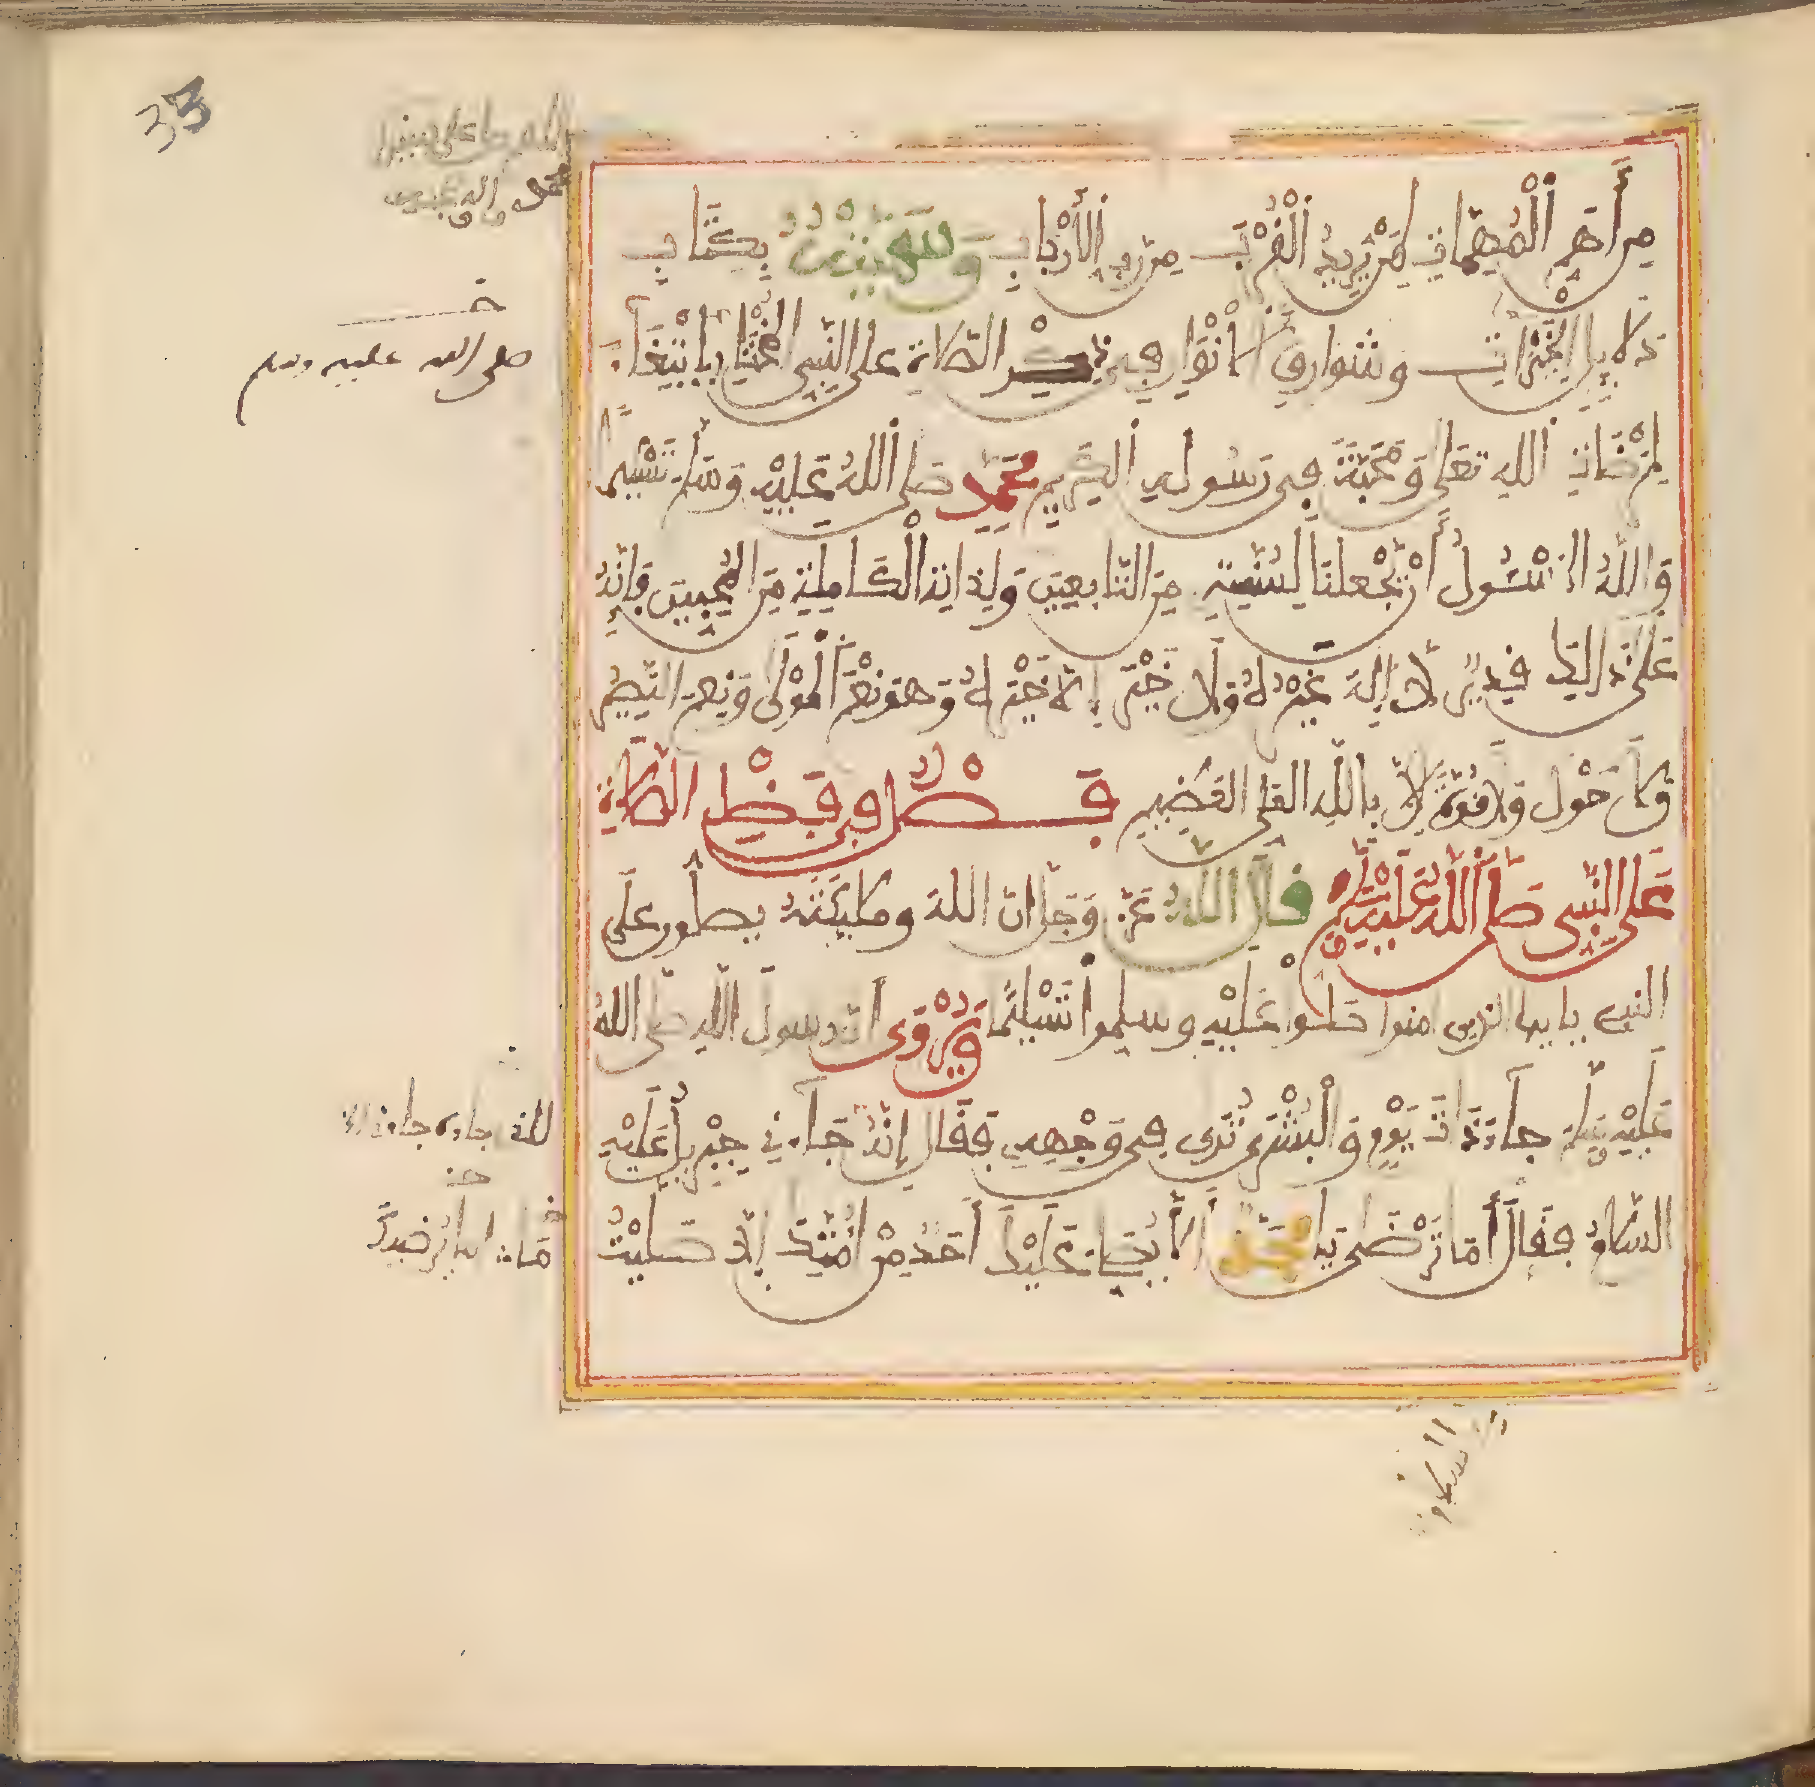 33
اللهم صل على سيدنا
محمد واله وصحبه
من أهم المهمات لمن يريد القرب من رب الأرباب وسميته بكتاب
دلايل الخيرات وشوارق الانوار في ذكر الصلاة على النبي المختار ابتغاء
لمرضات الله تعلى ومحبة في رسوله الكريم محمد صلى الله عليه وسلم تسليما
صلى الله عليه وسلم
والله المسئول أن يجعلنا لسنته من التابعين ولذاته الكاملة من المحبين فإنه
على ذلك قدير لا إله غيره ولا خير إلا خيره وهو نعم المولى ونعم النصير
ولا حول ولا قوة إلا بالله العلي العظيم فصل في فضل الصلاة
على النبي صلى الله عليه وسلم قال الله عز وجل ان الله وملئكته يصلون على
النبي يايها الذين امنوا صلوا عليه وسلموا تسليما ويروى ان رسول الله صلى الله
عليه وسلم جاء ذات يوم والبشرى ترى في وجهه فقال إنه جاءني جبريل عليه
السلام فقال أما ترضى يا محمد ألا يصلي عليك أحد من أمتك إلا صليت